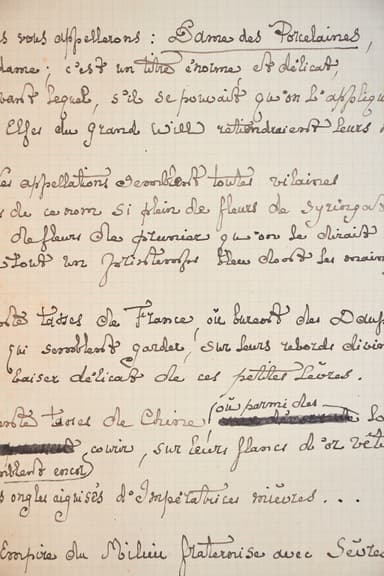 s vous appellerons : Dame des Porcelaines,
dame, c'est un titre énorme et délicat,
vant lequel, s'il se pouvait qu'on l'appliq
Elfes du grand Will retiendraient leurs
es appellations semblent toutes vilaines
s de ce nom si plein de fleurs de syringa
de fleurs de prunier qu'on le dirait
tout un printemps bleu dont les main
tasses de France, où burent des Daup
qui semblent garder, sur leurs rebords divin
baiser délicat de ces petites lèvres.
tasses de Chine, (où parmi des
courir, sur leurs flancs d'or vêt
mblent encor)
s ongles aiguisés d'Impératrices mièvres...
Empire du Milieu fraternise avec Sèvres